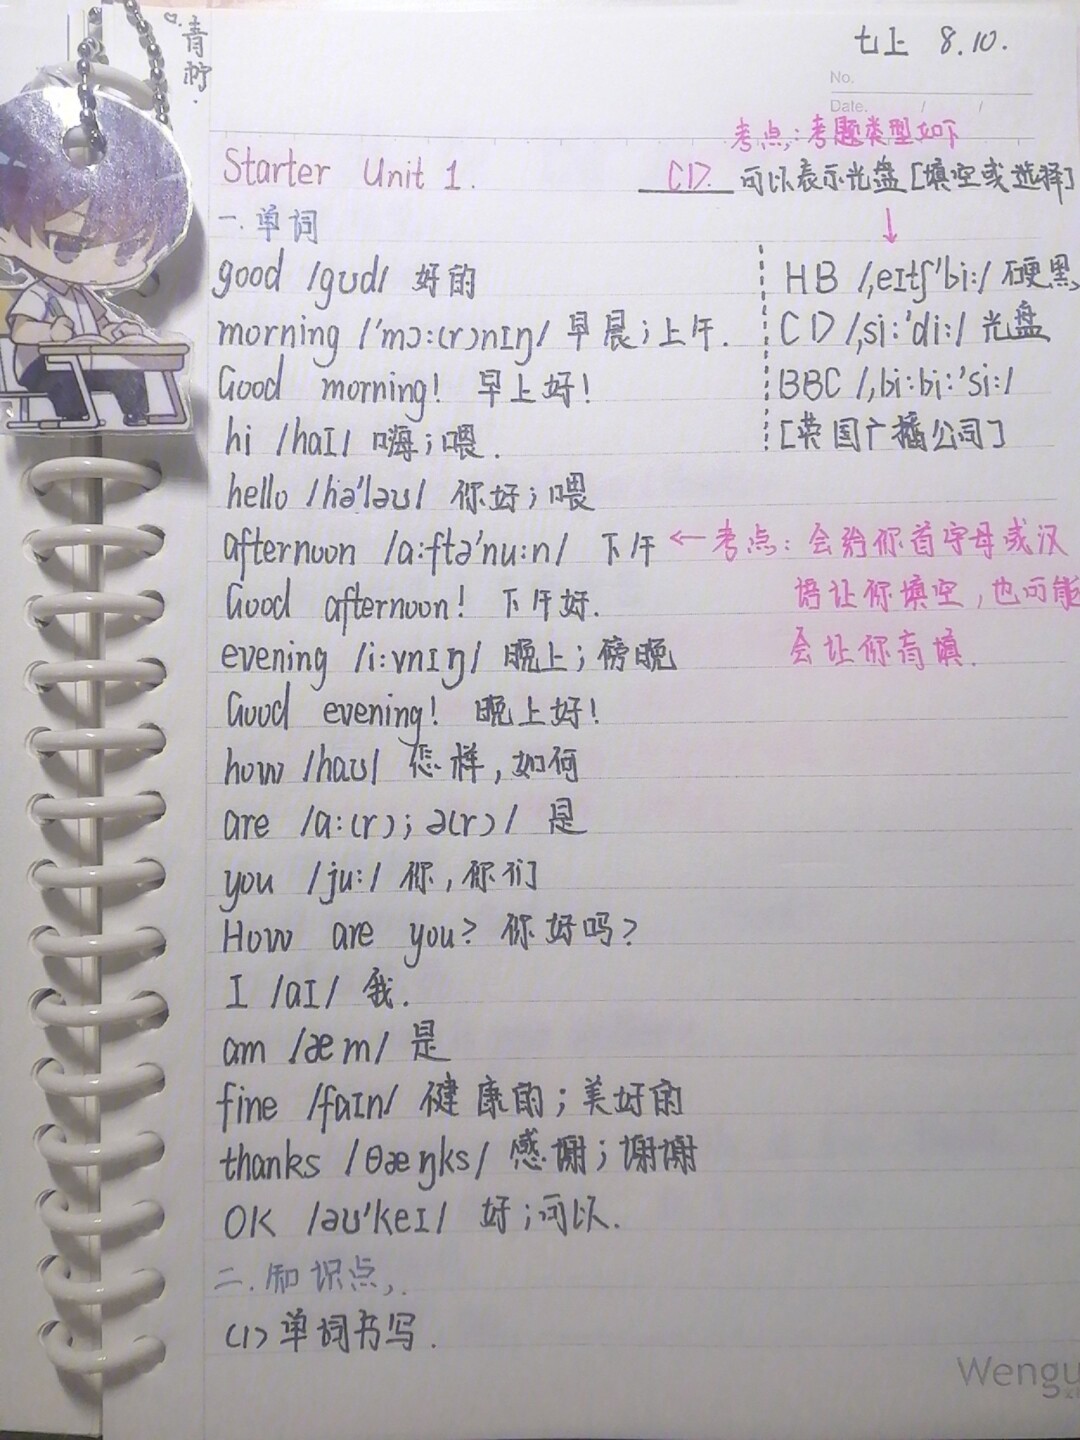 青柠.
七上 8.10.
No.
Date. / /
考点:考题类型如下
Starter Unit 1.
CD 可以表示光盘[填空或选择]
↓
一.单词
good /gʊd/ 好的
HB /ˌeɪtʃ'bi:/ 硬黑
morning /'mɔ:(r)nɪŋ/ 早晨;上午.
CD /ˌsi:'di:/ 光盘
Good morning! 早上好!
BBC /ˌbi:bi:'si:/
hi /haɪ/ 嗨;喂.
[英国广播公司]
hello /hə'ləʊ/ 你好;喂
afternoon /a:ftə'nu:n/ 下午 ←考点:会给你首字母或汉
Good afternoon! 下午好.
语让你填空,也可能
evening /i:vnɪŋ/ 晚上;傍晚
会让你盲填.
Good evening! 晚上好!
how /haʊ/ 怎样,如何
are /a:(r);ə(r)/ 是
you /ju:/ 你,你们
How are you? 你好吗?
I /aɪ/ 我.
am /æm/ 是
fine /faɪn/ 健康的;美好的
thanks /θæŋks/ 感谢;谢谢
OK /əʊ'keɪ/ 好;可以.
二.知识点,.
(1)单词书写.
Wengu